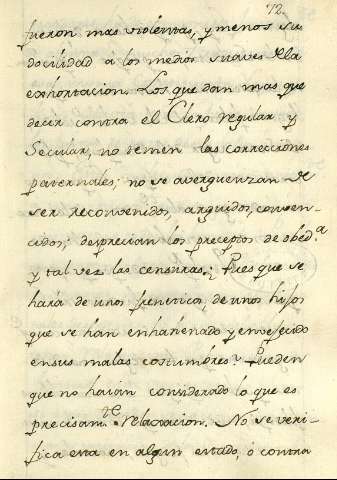 72.
fueron mas violentas, y menos su
docilidad a los medios suaves de la
exhortacion. Los que dan mas que
decir contra el Clero regular y
Secular, no temen las correcciones
paternales; no se averguenzan de
ser reconvenidos, arguidos, conven-
cidos; desprecian los preceptos de obed.ª
y tal vez las censuras. ¿Pues que se
hará de unos freneticos, de unos hijos
que se han enhañenado y envejecido
en sus malas costumbres? Pueden
que no haian considerado lo que es
precisam.te relaxacion. No se veri-
fica esta en algun estado, ó contra